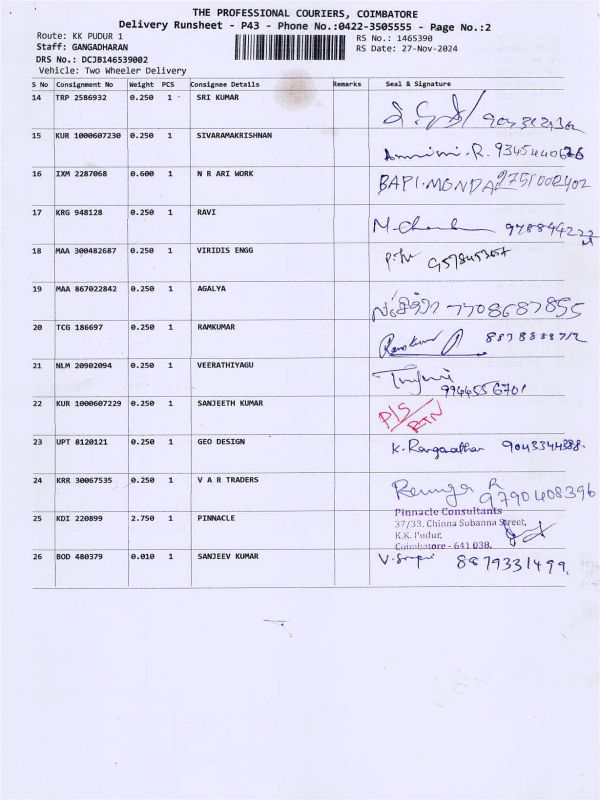 THE PROFESSIONAL COURIERS, COIMBATORE
Delivery Runsheet - P43 - Phone No.:0422-3505555 - Page No.:2
Route: KK PUDUR 1
RS No.: 1465390
Staff: GANGADHARAN
RS Date: 27-Nov-2024
DRS No.: DCJB146539002
Vehicle: Two Wheeler Delivery
S No Consignment No Weight PCS Consignee Details Remarks Seal & Signature
14 TRP 2586932 0.250 1 SRI KUMAR
15 KUR 1000607230 0.250 1 SIVARAMAKRISHNAN 9345440676
16 IXM 2287068 0.600 1 N R ARI WORK BAPI.MONDA
17 KRG 948128 0.250 1 RAVI
18 MAA 300482687 0.250 1 VIRIDIS ENGG
19 MAA 867022842 0.250 1 AGALYA 7708687855
20 TCG 186697 0.250 1 RAMKUMAR
21 NLM 20902094 0.250 1 VEERATHIYAGU
9944556701
22 KUR 1000607229 0.250 1 SANJEETH KUMAR P/S
RTN
23 UPT 8120121 0.250 1 GEO DESIGN
24 KRR 30067535 0.250 1 V A R TRADERS
9790408396
25 KDI 220899 2.750 1 PINNACLE
Pinnacle Consultants
37/33, Chinna Subanna Street,
K.K. Pudur,
Coimbatore - 641 038.
26 BOD 480379 0.010 1 SANJEEV KUMAR 8879331499